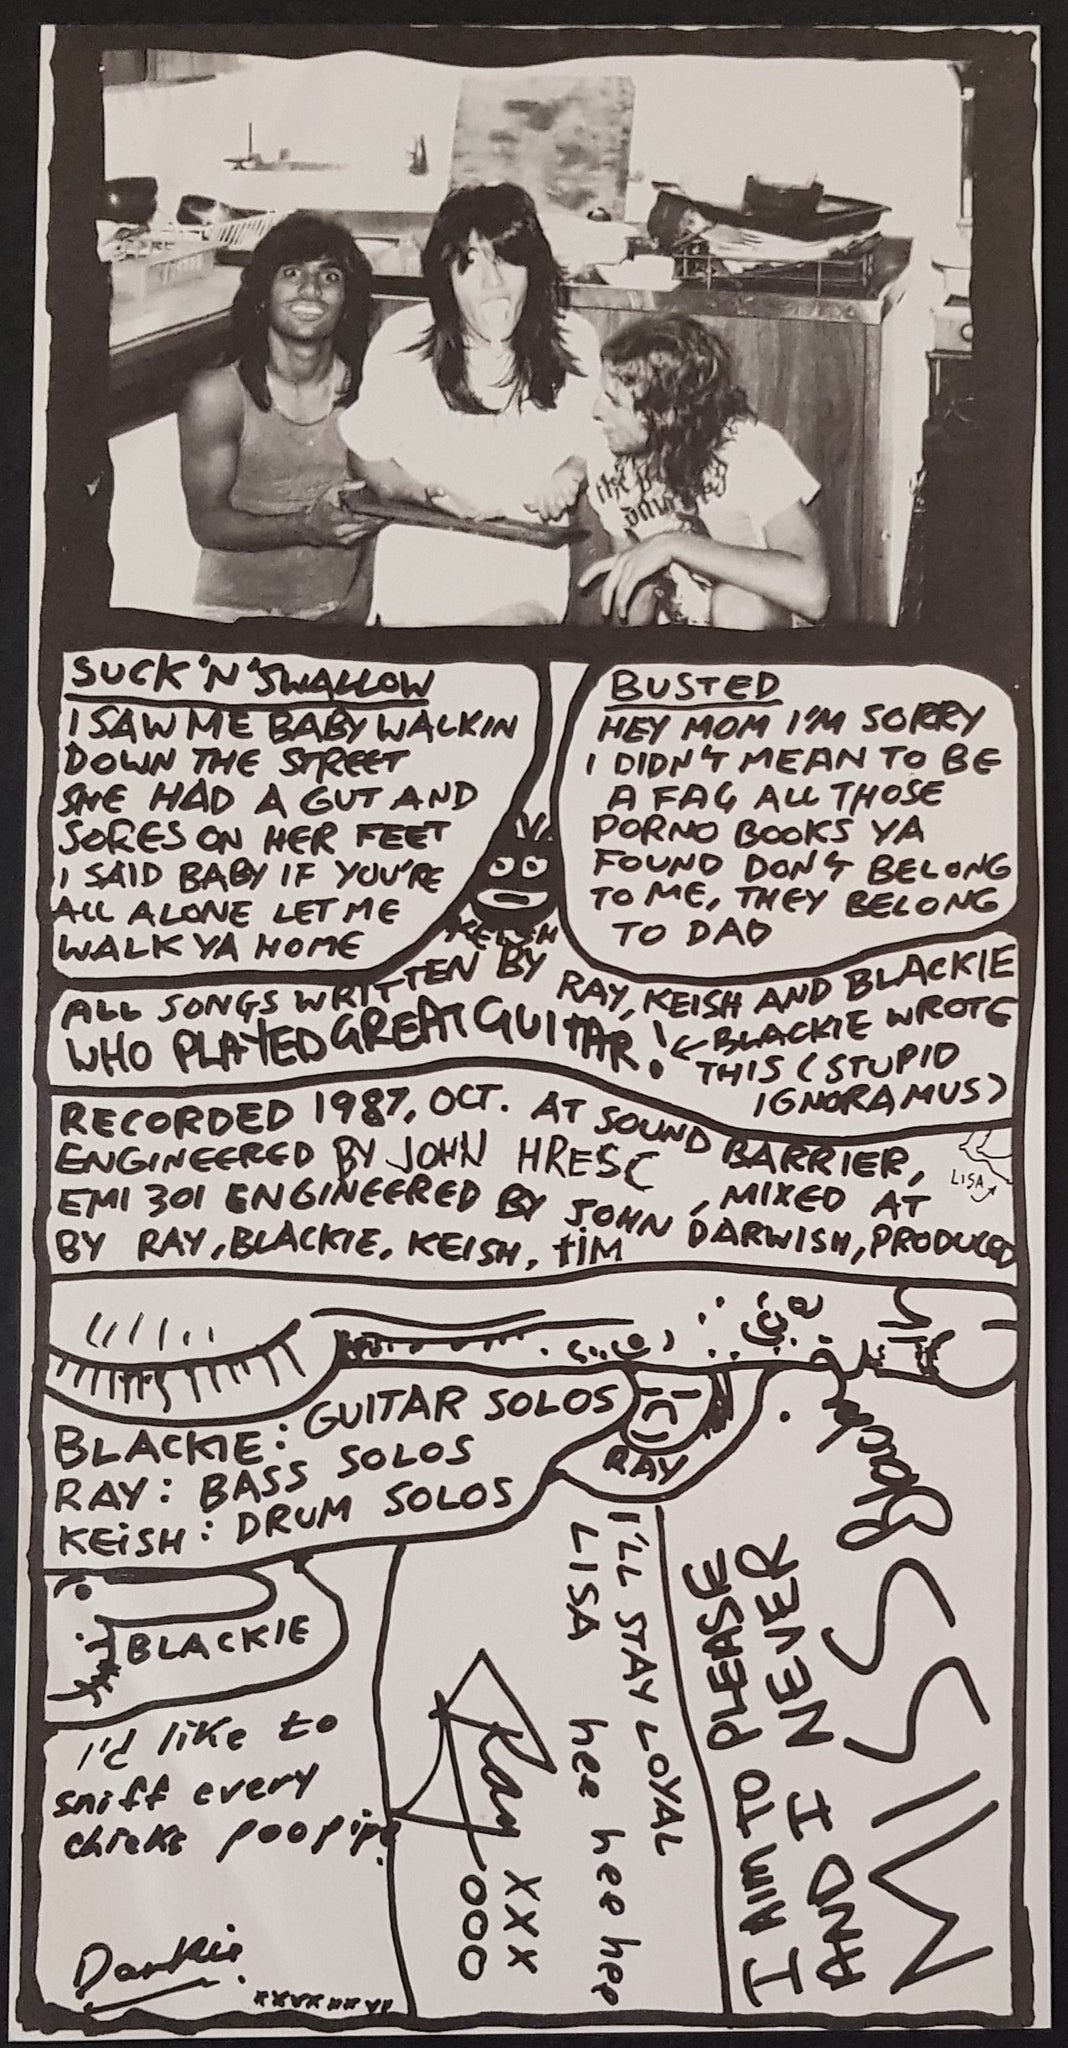 SUCK 'N' SWALLOW
I SAW ME BABY WALKIN
DOWN THE STREET
SHE HAD A GUT AND
SORES ON HER FEET
I SAID BABY IF YOU'RE
ALL ALONE LET ME
WALK YA HOME
BUSTED
HEY MOM I'M SORRY
I DIDN'T MEAN TO BE
A FAG ALL THOSE
PORNO BOOKS YA
FOUND DON'T BELONG
TO ME, THEY BELONG
TO DAD
KEISH
ALL SONGS WRITTEN BY RAY, KEISH AND BLACKIE
WHO PLAYED GREAT GUITAR!
← BLACKIE WROTE
THIS (STUPID
IGNORAMUS)
RECORDED 1987, OCT. AT SOUND BARRIER,
ENGINEERED BY JOHN HRESC, MIXED AT
EMI 301 ENGINEERED BY JOHN DARWISH, PRODUCED
BY RAY, BLACKIE, KEISH, TIM
LISA
BLACKIE: GUITAR SOLOS
RAY: BASS SOLOS
KEISH: DRUM SOLOS
RAY
BLACKIE
I'd like to
sniff every
chicks poopipe
Darkie
xxvxxxvv
I'LL STAY LOYAL
LISA hee hee hee
Ray xxx
ooo
I AIM TO PLEASE
AND I NEVER
MISS
Black